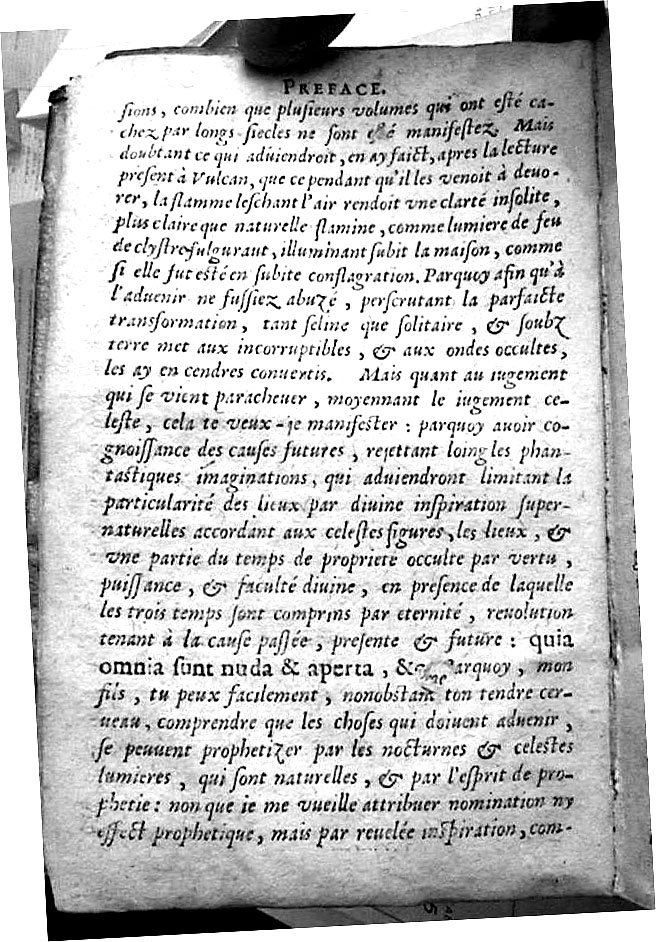 PREFACE.
ſions, combien que pluſieurs volumes qui ont eſté ca-
chez par longs ſiecles ne ſont eſté manifeſtez. Mais
doubtant ce qui aduiendroit, en ay faict, apres la lecture
preſent à Vulcan, que ce pendant qu'il les venoit à deuo-
rer, la flamme leſchant l'air rendoit vne clarté inſolite,
plus claire que naturelle flamine, comme lumiere de feu
de clyſtre fulgurant, illuminant ſubit la maiſon, comme
ſi elle fut eſté en ſubite conflagration. Parquoy afin qu'à
l'aduenir ne fuſſiez abuzé, perſcrutant la parfaicte
transformation, tant ſeline que ſolitaire, & ſoubz
terre met aux incorruptibles, & aux ondes occultes,
les ay en cendres conuertis. Mais quant au iugement
qui ſe vient paracheuer, moyennant le iugement ce-
leſte, cela te veux-ie manifeſter : parquoy auoir co-
gnoiſſance des cauſes futures, reiettant loing les phan-
taſtiques imaginations, qui aduiendront limitant la
particularité des lieux par diuine inſpiration ſuper-
naturelles accordant aux celeſtes figures, les lieux, &
vne partie du temps de proprieté occulte par vertu,
puiſſance, & faculté diuine, en preſence de laquelle
les trois temps ſont comprins par eternité, reuolution
tenant à la cauſe paſſée, preſente & future : quia
omnia ſunt nuda & aperta, &c. Parquoy, mon
fils, tu peux facilement, nonobſtant ton tendre cer-
ueau, comprendre que les choſes qui doiuent aduenir,
ſe peuuent prophetizer par les nocturnes & celeſtes
lumieres, qui ſont naturelles, & par l'eſprit de pro-
phetie : non que ie me vueille attribuer nomination ny
effect prophetique, mais par reuelée inſpiration, com-